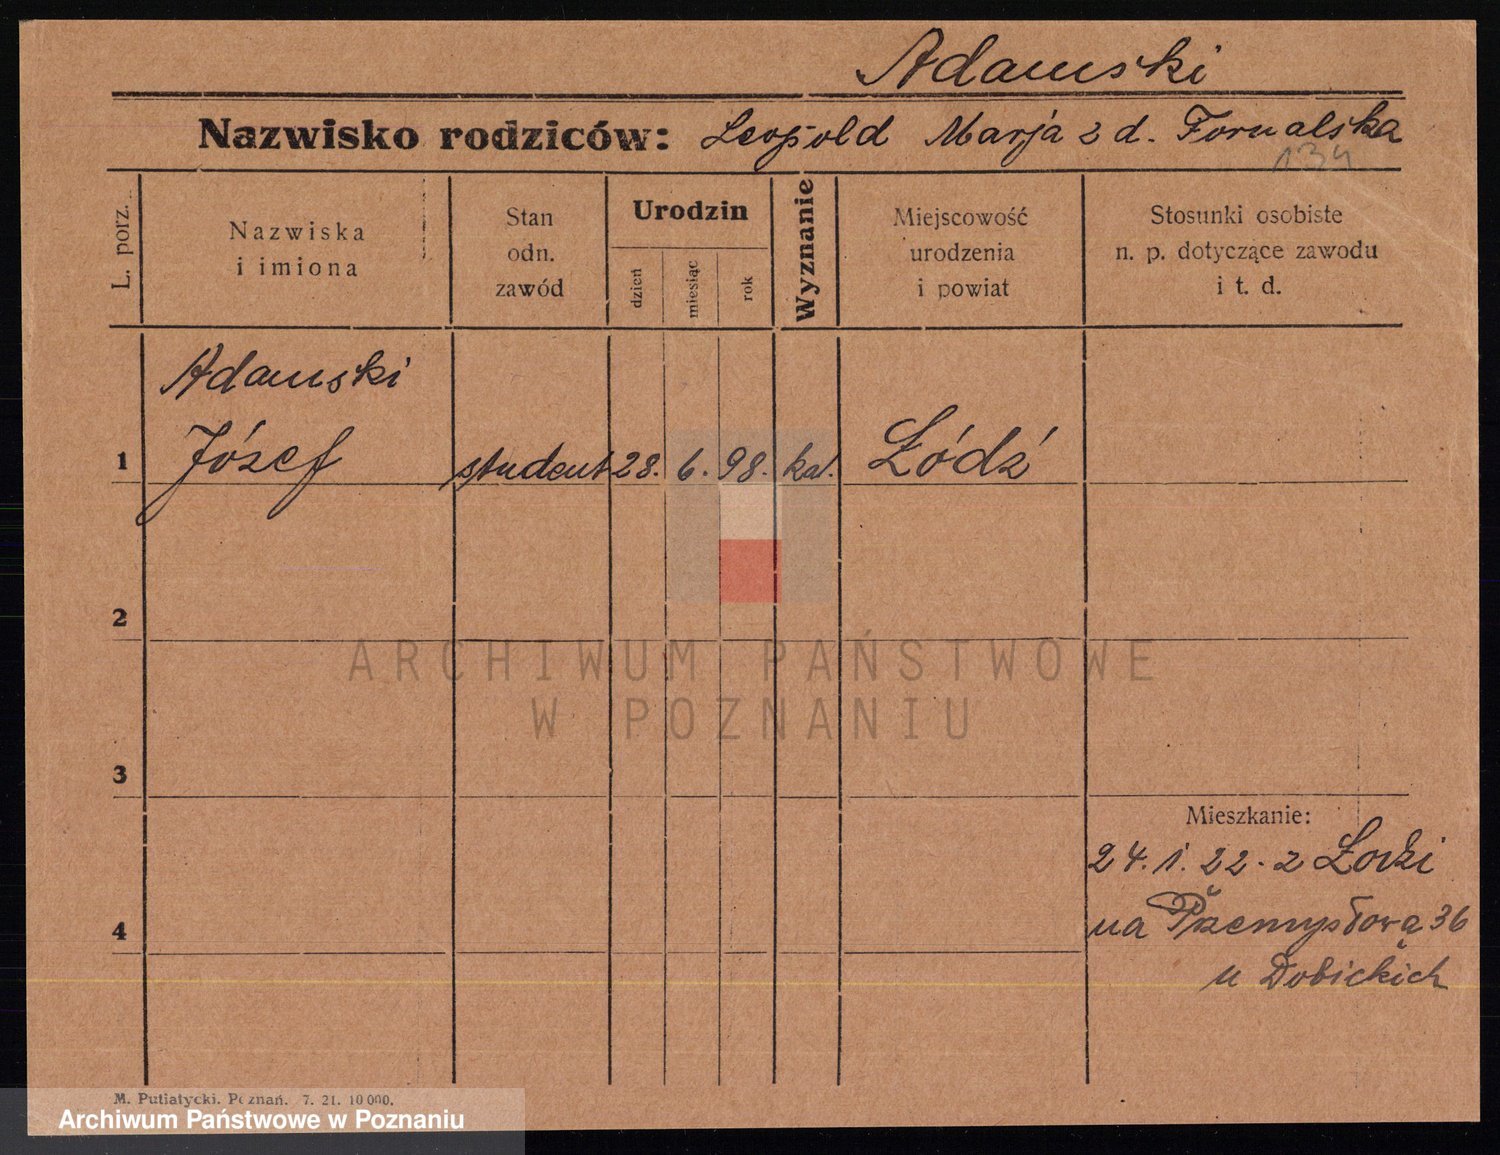 Adamski
Nazwisko rodziców: Leopold Marja z d. Fornalska
134
L. porz.
Nazwiska
i imiona
Stan
odn.
zawód
Urodzin
dzień
miesiąc
rok
Wyznanie
Miejscowość
urodzenia
i powiat
Stosunki osobiste
n. p. dotyczące zawodu
i t. d.
Adamski
1 Józef student 28. 6. 98. kat. Łódź
2
ARCHIWUM PAŃSTWOWE
W POZNANIU
3
Mieszkanie:
24. 1. 22. z Łodzi
4 na Przemysłową 36
u Dobickich
M. Putiatycki. Poznań. 7. 21. 10 000.
Archiwum Państwowe w Poznaniu